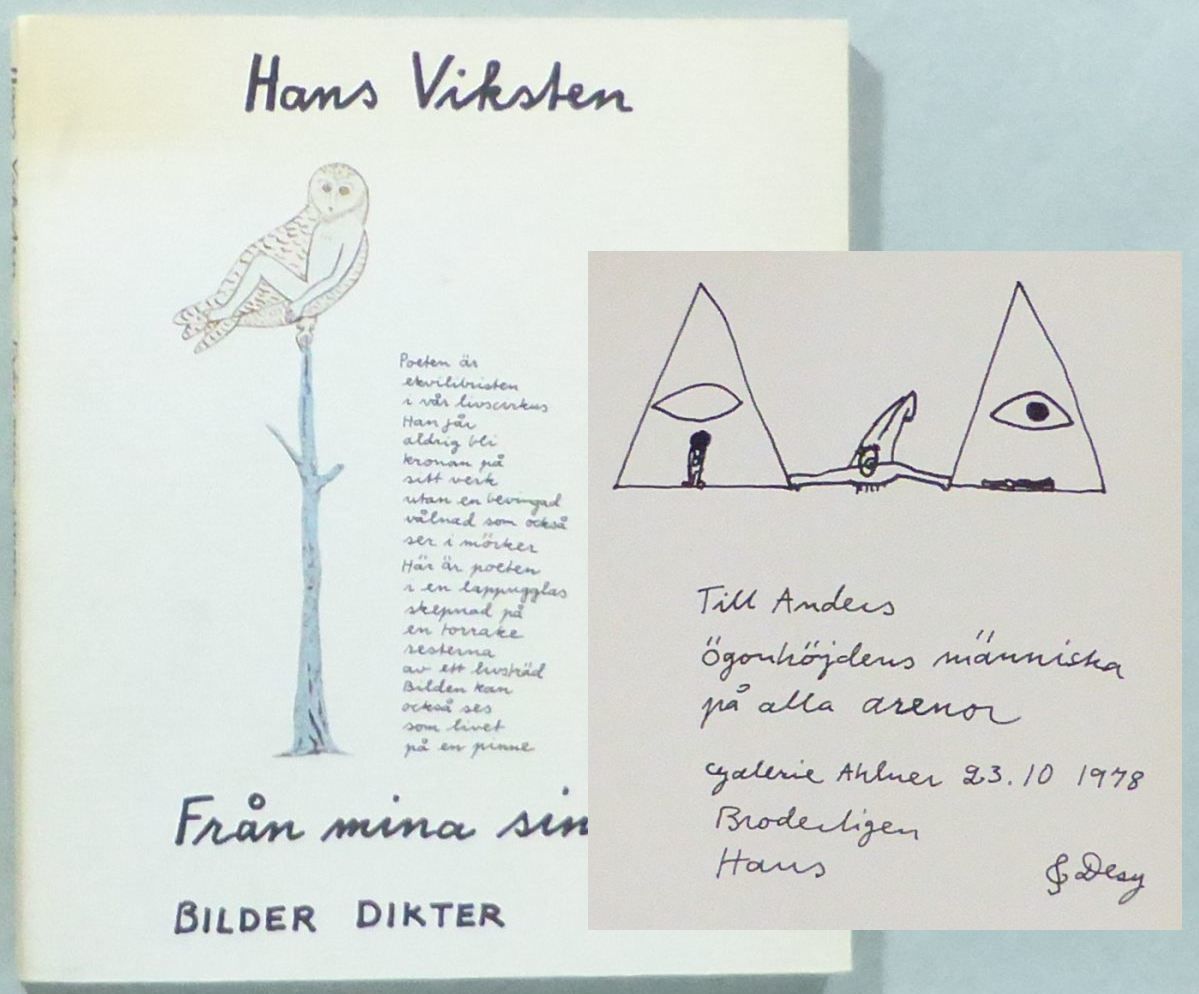 Hans Viksten
Poeten är
ekvilibristen
i vår livscirkus
Han får
aldrig bli
kronan på
sitt verk
utan en bevingad
vålnad som också
ser i mörker
Här är poeten
i en lappugglas
skepnad på
en torrake
resterna
av ett livsträd
Bilden kan
också ses
som livet
på en pinne
Från mina sin
BILDER DIKTER
Till Anders
ögonhöjdens människa
på alla arenor
Galerie Ahlner 23.10 1978
Broderligen
Hans & Desy